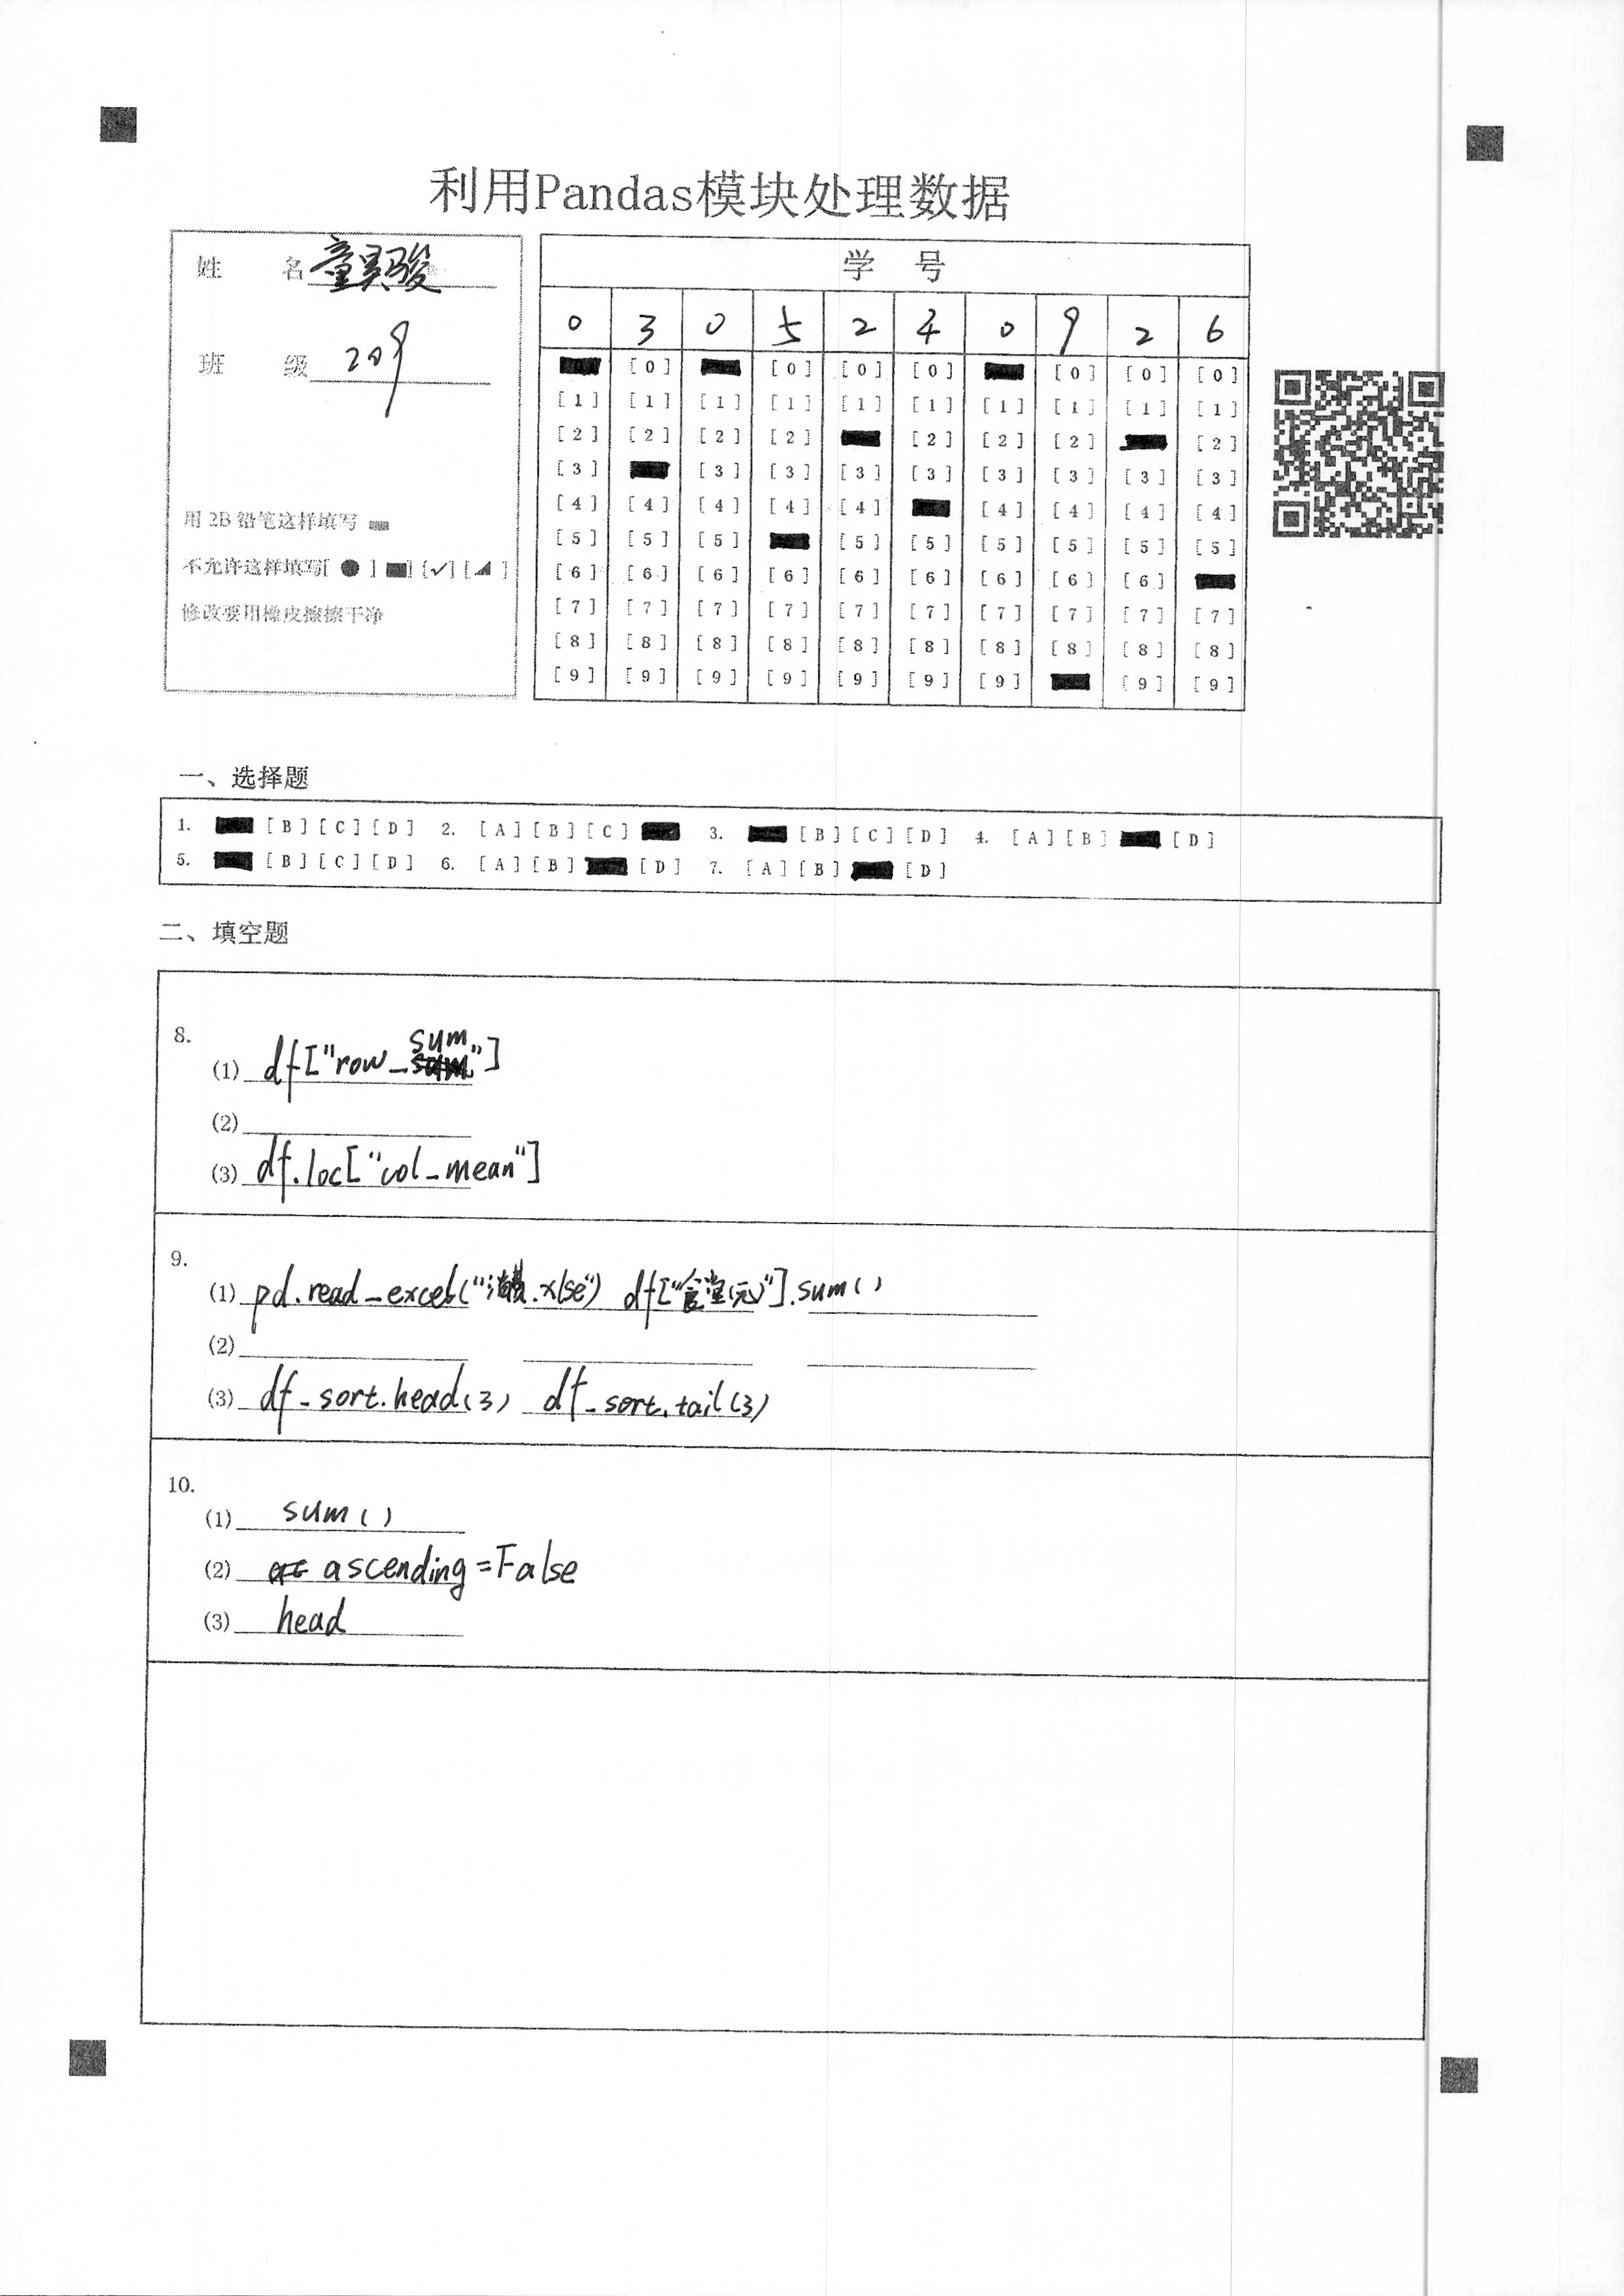 利用Pandas模块处理数据
姓 名 童昊骏
班 级 209
用 2B 铅笔这样填写
不允许这样填写[ ● ] [■] [✓] [◢ ]
修改要用橡皮擦擦干净
学 号
0 3 0 5 2 4 0 9 2 6
[0] [0] [0] [0] [0] [0] [0]
[1] [1] [1] [1] [1] [1] [1] [1] [1] [1]
[2] [2] [2] [2] [2] [2] [2] [2]
[3] [3] [3] [3] [3] [3] [3] [3] [3]
[4] [4] [4] [4] [4] [4] [4] [4] [4]
[5] [5] [5] [5] [5] [5] [5] [5] [5]
[6] [6] [6] [6] [6] [6] [6] [6] [6]
[7] [7] [7] [7] [7] [7] [7] [7] [7] [7]
[8] [8] [8] [8] [8] [8] [8] [8] [8] [8]
[9] [9] [9] [9] [9] [9] [9] [9] [9]
一、选择题
1. [B] [C] [D] 2. [A] [B] [C] 3. [B] [C] [D] 4. [A] [B] [D]
5. [B] [C] [D] 6. [A] [B] [D] 7. [A] [B] [D]
二、填空题
8.
(1) df["row_sum"]
(2)
(3) df.loc["col_mean"]
9.
(1) pd.read_excel(".xlse") df["食堂(元)"].sum()
(2)
(3) df_sort.head(3) df_sort.tail(3)
10.
(1) sum()
(2) ascending=False
(3) head